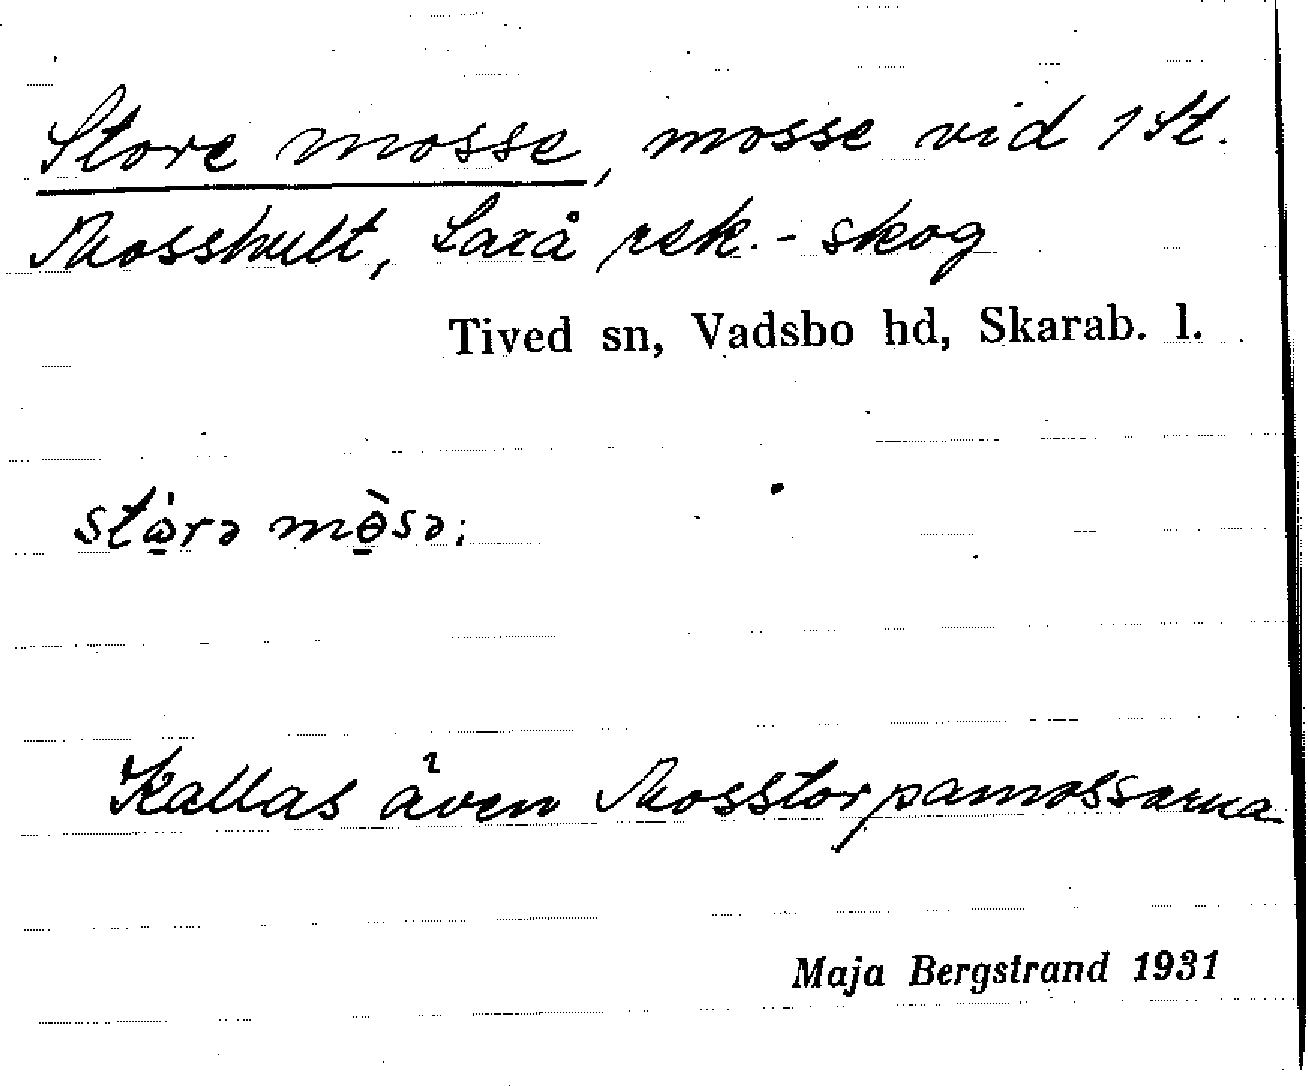 Store mosse, mosse vid 1 St.
Mosshult, Laxå rek.-skog
Tived sn, Vadsbo hd, Skarab. l.
stὼ̲rə mɵ̲̀sə;
Kallas även Mosstorpamossarna
Maja Bergstrand 1931